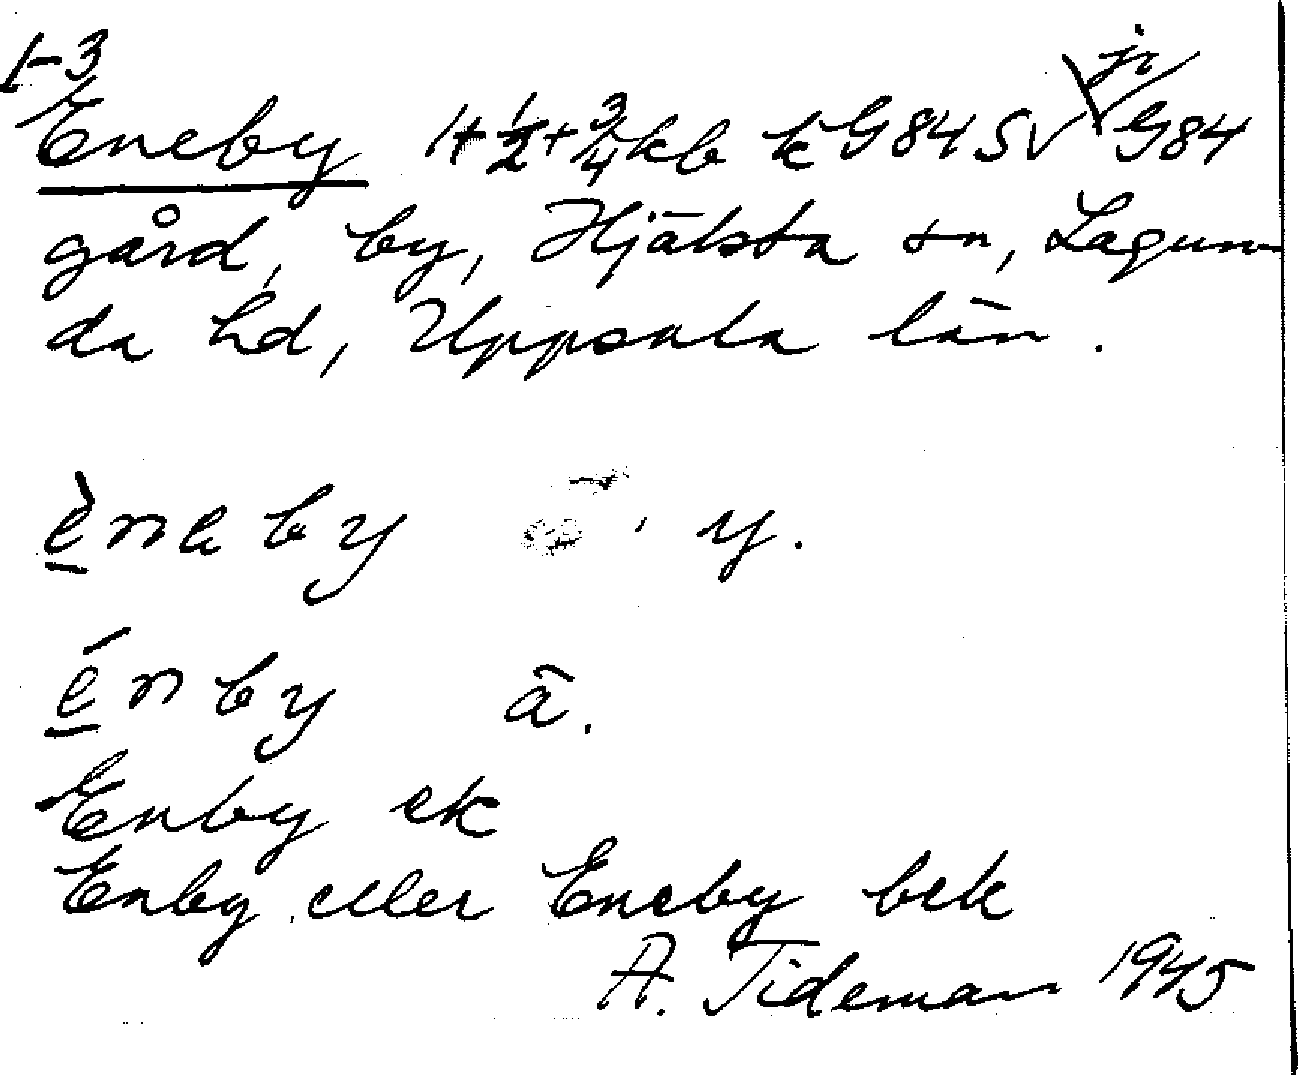 1-3
jr
Eneby 1+½+¾ kb k G84SV G84
gård, by, Hjälsta sn, Lagun-
da hd, Uppsala län.
èneby y.
énby ä.
Enby ek
Enby eller Eneby bek
A. Tideman 1945